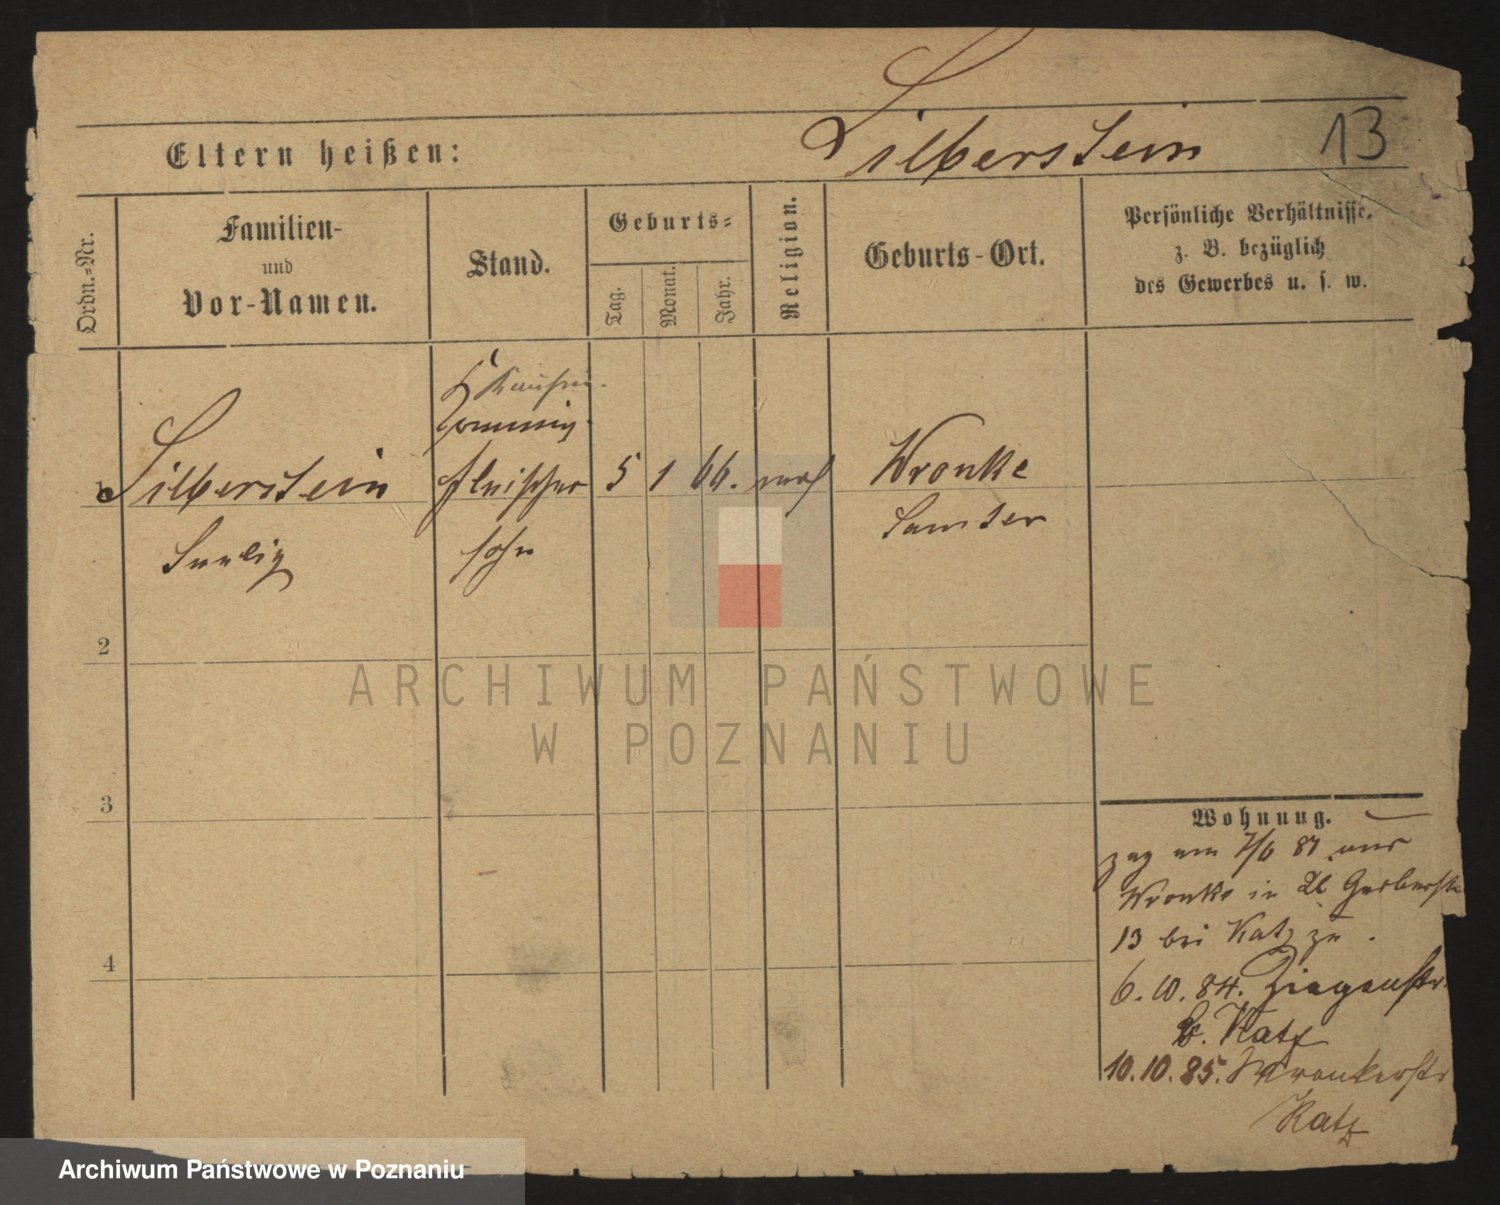 Silberstein
13
Eltern heißen:
Ordn.-Nr.
Familien-
und
Vor-Namen.
Stand.
Geburts-
Tag.
Monat.
Jahr.
Religion.
Geburts-Ort.
Persönliche Verhältnisse.
z. B. bezüglich
des Gewerbes u. s. w.
Kaufm.
Commis
1 Silberstein Fleischer 5 1 66. mos Wronke
Samter
Seelig sohn
2
3
4
Wohnung.
zog am 7/6 81 aus
Wronke in Kl Gerberstr
13 bei Katz zu.
6.10.84. Ziegenstr.
b. Katz
10.10.85. Wronkerstr
Katz
ARCHIWUM PAŃSTWOWE
W POZNANIU
Archiwum Państwowe w Poznaniu